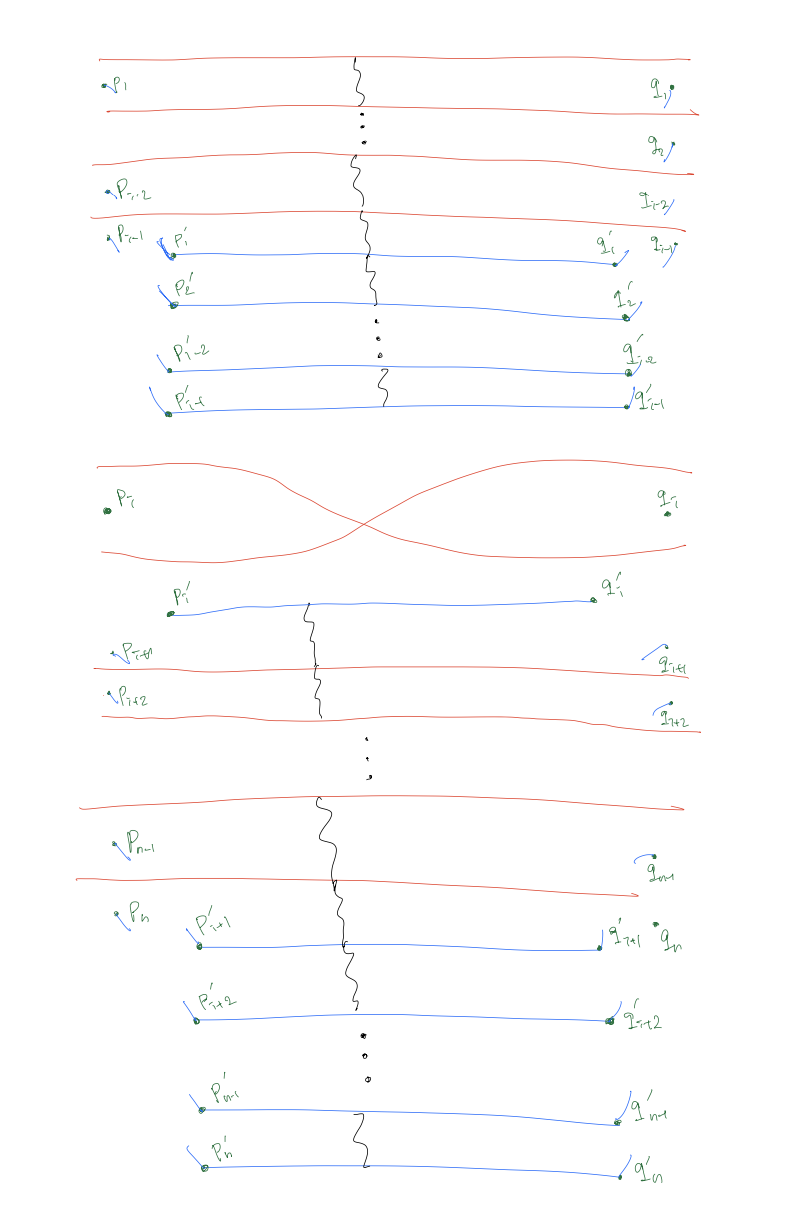 P₁ q₁
q₂
P_{i-2} q_{i-2}
P_{i-1} P'₁ q'₁ q_{i-1}
P'₂ q'₂
P'_{i-2} q'_{i-2}
P'_{i-1} q'_{i-1}
P_i q_i
P'_i q'_i
P_{i+1} q_{i+1}
P_{i+2} q_{i+2}
P_{n-1} q_{n-1}
P_n P'_{i+1} q'_{i+1} q_n
P'_{i+2} q'_{i+2}
P'_{n-1} q'_{n-1}
P'_n q'_n